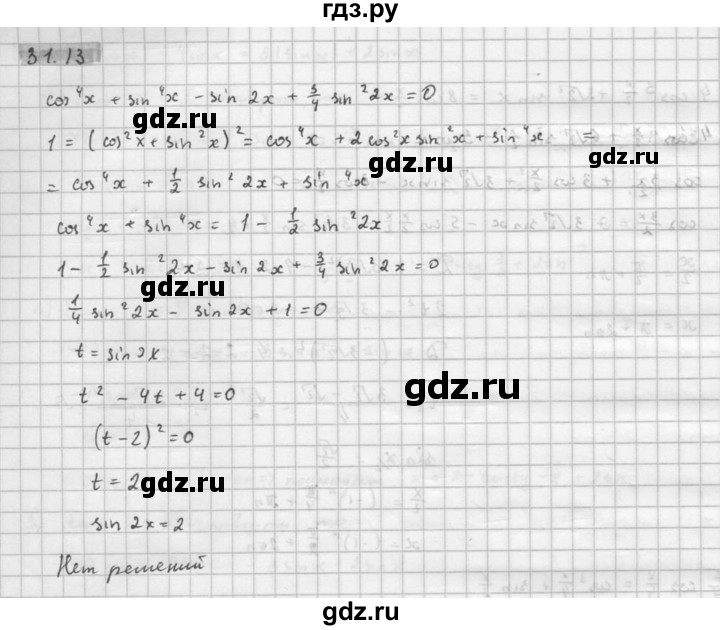 гдз.ру
31.13
cos⁴x + sin⁴x - sin 2x + 3/4 sin²2x = 0
gdz.ru
1 = (cos²x + sin²x)² = cos⁴x + 2cos²x sin²x + sin⁴x =
gdz.ru
= cos⁴x + 1/2 sin²2x + sin⁴x
gdz.ru
cos⁴x + sin⁴x = 1 - 1/2 sin²2x
gdz.ru
1 - 1/2 sin²2x - sin 2x + 3/4 sin²2x = 0
gdz.ru
1/4 sin²2x - sin 2x + 1 = 0
t = sin 2x
t² - 4t + 4 = 0
gdz.ru
(t - 2)² = 0
t = 2
gdz.ru
sin 2x = 2
Нет решений
gdz.ru